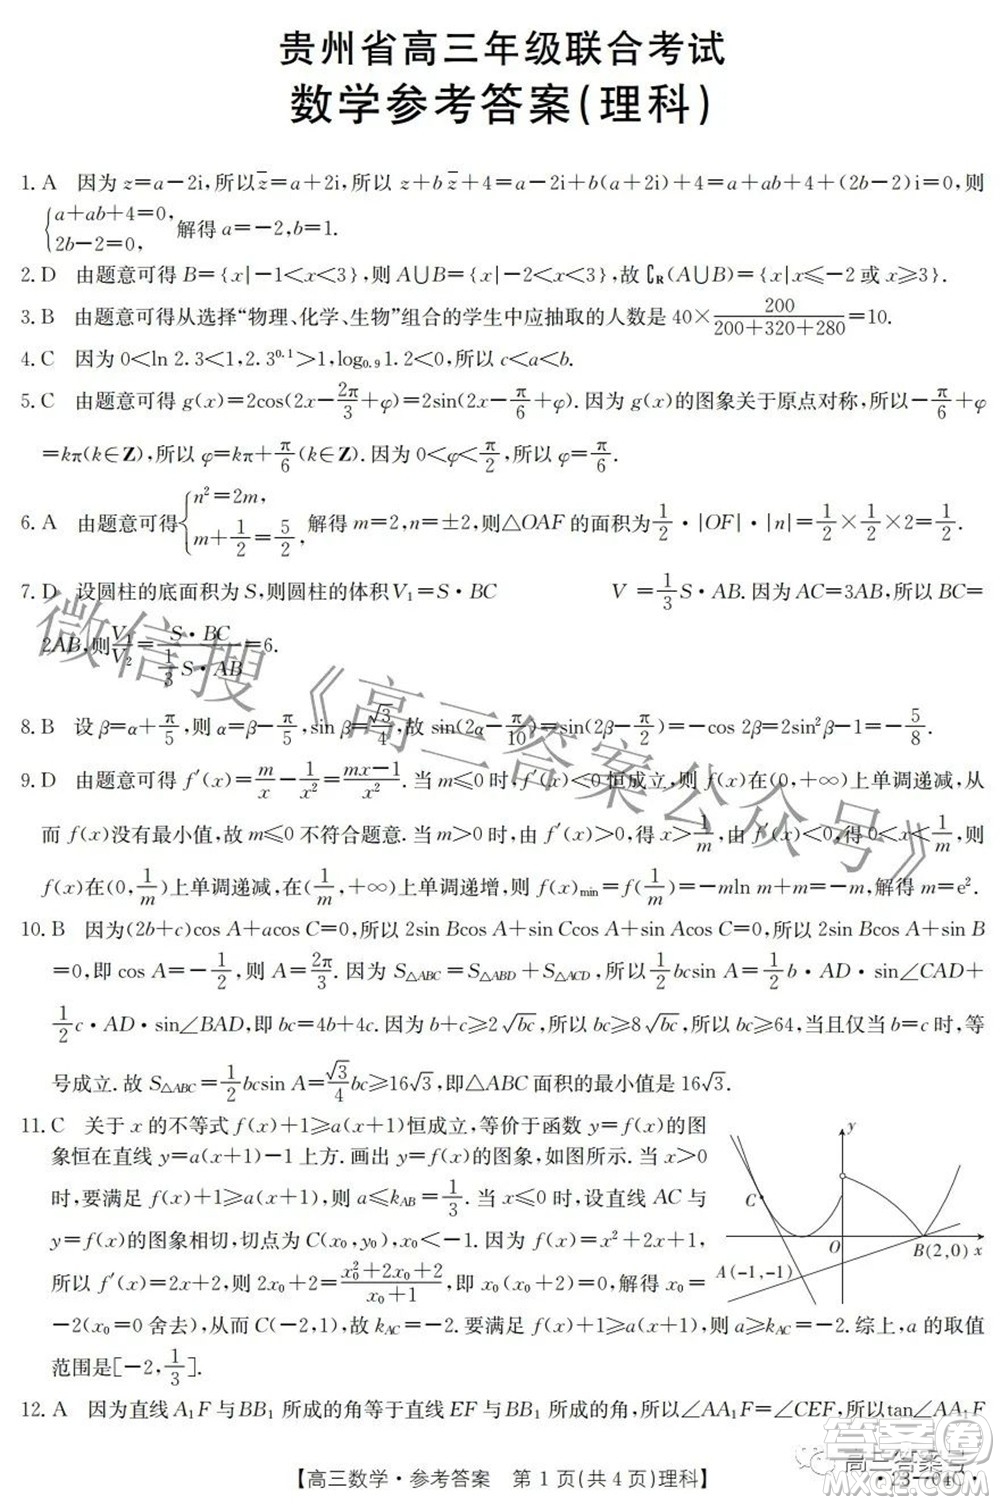 贵州省高三年级联合考试
数学参考答案(理科)
1. A 因为 z=a-2i,所以z̅=a+2i,所以 z+bz̅+4=a-2i+b(a+2i)+4=a+ab+4+(2b-2)i=0,则
{a+ab+4=0, 2b-2=0, 解得 a=-2,b=1.
2. D 由题意可得 B={x|-1<x<3},则 A∪B={x|-2<x<3},故 ∁R(A∪B)={x|x≤-2 或 x≥3}.
3. B 由题意可得从选择“物理、化学、生物”组合的学生中应抽取的人数是 40×200/(200+320+280)=10.
4. C 因为 0<ln 2.3<1,2.3^0.1>1,log₀.₉1.2<0,所以 c<a<b.
5. C 由题意可得 g(x)=2cos(2x-2π/3+φ)=2sin(2x-π/6+φ).因为 g(x)的图象关于原点对称,所以-π/6+φ
=kπ(k∈Z),所以 φ=kπ+π/6(k∈Z).因为 0<φ<π/2,所以 φ=π/6.
6. A 由题意可得{n²=2m, m+1/2=5/2, 解得 m=2,n=±2,则△OAF 的面积为1/2·|OF|·|n|=1/2×1/2×2=1/2.
7. D 设圆柱的底面积为 S,则圆柱的体积V₁=S·BC V =1/3 S·AB.因为 AC=3AB,所以 BC=
2AB,则V₁/V₂=S·BC/(1/3 S·AB)=6.
8. B 设 β=α+π/5,则 α=β-π/5,sin β=√3/4,故 sin(2α-π/10)=sin(2β-π/2)=-cos 2β=2sin²β-1=-5/8.
9. D 由题意可得 f′(x)=m/x-1/x²=(mx-1)/x².当 m≤0 时,f′(x)<0 恒成立,则 f(x)在(0,+∞)上单调递减,从
而 f(x)没有最小值,故 m≤0 不符合题意.当 m>0 时,由 f′(x)>0,得 x>1/m,由 f′(x)<0,得 0<x<1/m,则
f(x)在(0,1/m)上单调递减,在(1/m,+∞)上单调递增,则 f(x)min=f(1/m)=-mln m+m=-m,解得 m=e².
10. B 因为(2b+c)cos A+acos C=0,所以 2sin Bcos A+sin Ccos A+sin Acos C=0,所以 2sin Bcos A+sin B
=0,即 cos A=-1/2,则 A=2π/3.因为 S△ABC=S△ABD+S△ACD,所以1/2 bcsin A=1/2 b·AD·sin∠CAD+
1/2 c·AD·sin∠BAD,即 bc=4b+4c.因为 b+c≥2√bc,所以 bc≥8√bc,所以 bc≥64,当且仅当 b=c 时,等
号成立.故 S△ABC=1/2 bcsin A=√3/4 bc≥16√3,即△ABC 面积的最小值是 16√3.
11. C 关于 x 的不等式 f(x)+1≥a(x+1)恒成立,等价于函数 y=f(x)的图
象恒在直线 y=a(x+1)-1 上方.画出 y=f(x)的图象,如图所示.当 x>0
时,要满足 f(x)+1≥a(x+1),则 a≤kAB=1/3.当 x≤0 时,设直线 AC 与
y=f(x)的图象相切,切点为 C(x₀,y₀),x₀<-1.因为 f(x)=x²+2x+1,
所以 f′(x)=2x+2,则 2x₀+2=(x₀²+2x₀+2)/(x₀+1),即 x₀(x₀+2)=0,解得 x₀=
-2(x₀=0 舍去),从而 C(-2,1),故 kAC=-2.要满足 f(x)+1≥a(x+1),则 a≥kAC=-2.综上,a 的取值
范围是[-2,1/3].
y
C
O
B(2,0) x
A(-1,-1)
12. A 因为直线 A₁F 与 BB₁ 所成的角等于直线 EF 与 BB₁ 所成的角,所以∠AA₁F=∠CEF,所以tan∠AA₁F
【高三数学·参考答案 第 1 页(共 4 页)理科】
·23-04C·
微信搜《高三答案公众号》
高三答案号
答案圈
MXQE.COM